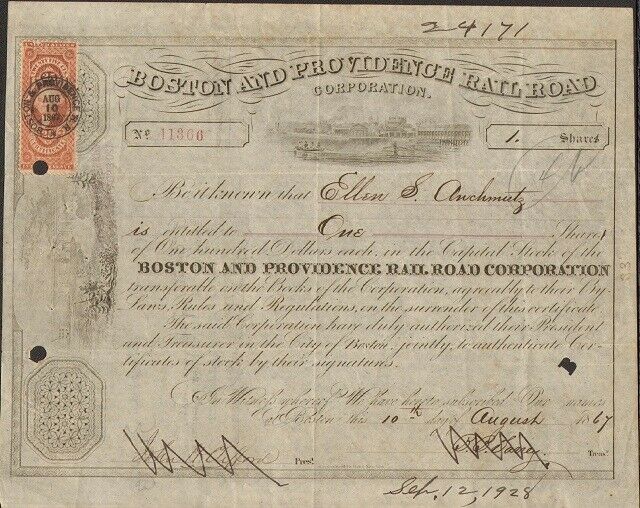 24171
BOSTON AND PROVIDENCE RAIL ROAD
CORPORATION.
AUG
10
No 11306
1. Shares
Be it known that Ellen S. Auchmutz
is entitled to One Shares
of One hundred Dollars each, in the Capital Stock of the
BOSTON AND PROVIDENCE RAIL ROAD CORPORATION
transferable on the Books of the Corporation, agreeably to their By
Laws, Rules and Regulations, on the surrender of this certificate.
The said Corporation have duly authorized their President
and Treasurer in the City of Boston, jointly, to authenticate Cer-
tificates of stock by their signatures.
In Witness whereof We have hereto subscribed Our names
at Boston this 10th day of August 1867
Prest.
Treasr.
Sep. 12, 1928